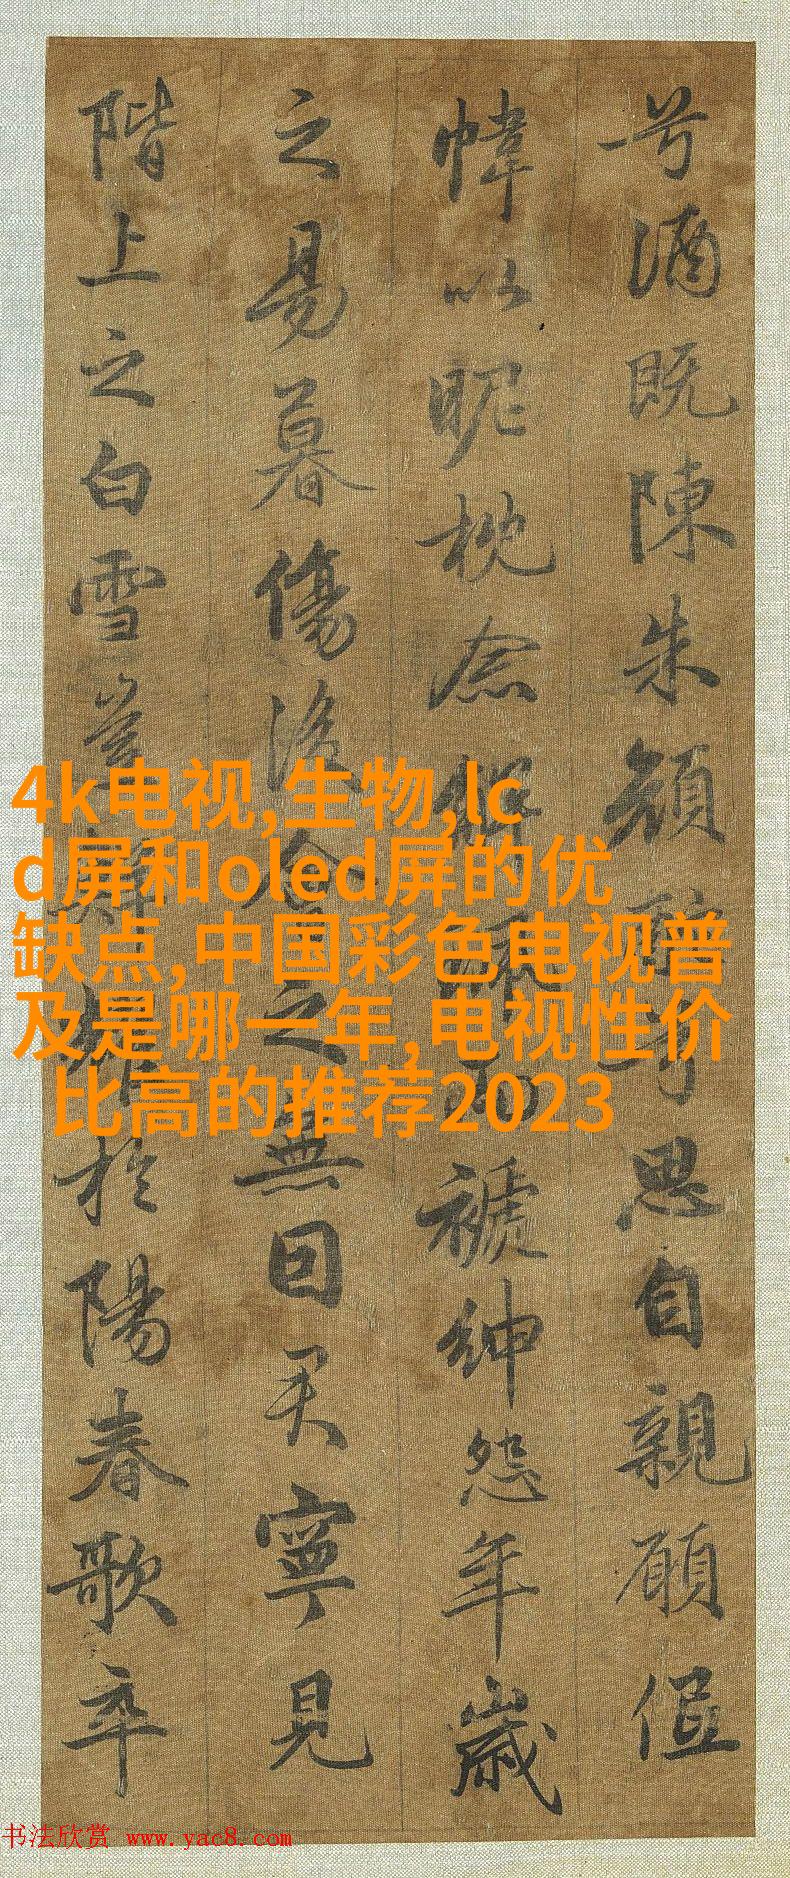 兮酒既陳朱顏酡兮思自親願低
幃以昵枕念解而褫紳怨年歲
之易暮傷後會之無因君寧見
階上之白雪豈鮮耀於陽春歌卒
4k电视,生物,lc
d屏和oled屏的优
缺点,中国彩色电视普
及是哪一年,电视性价
比高的推荐2023
书法欣赏 www.yac8.com